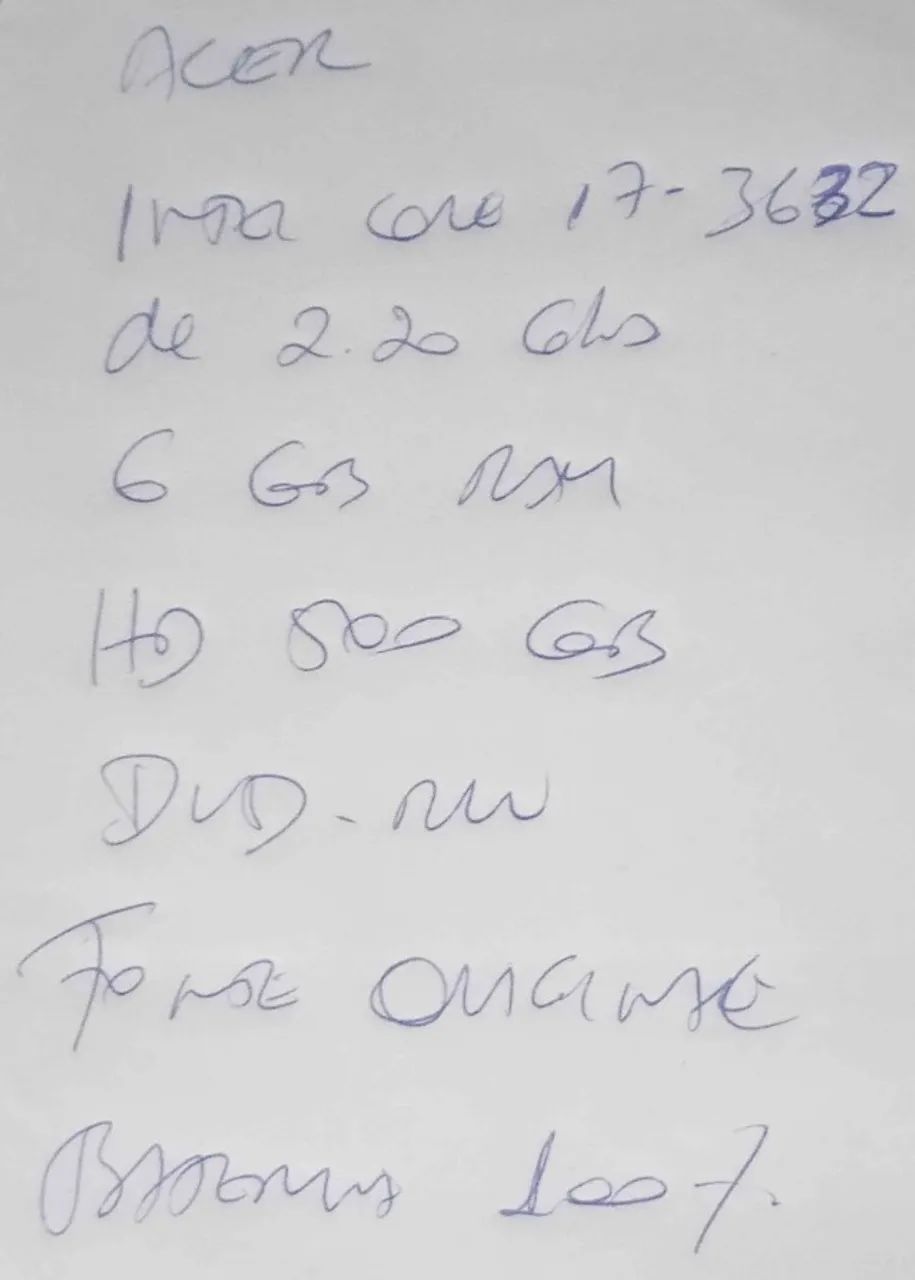 ACER
Intel core i7-3632
de 2.20 Ghs
6 GB RAM
HD 500 GB
DVD-RW
Fonte ORIGINAL
BATERIA 100%